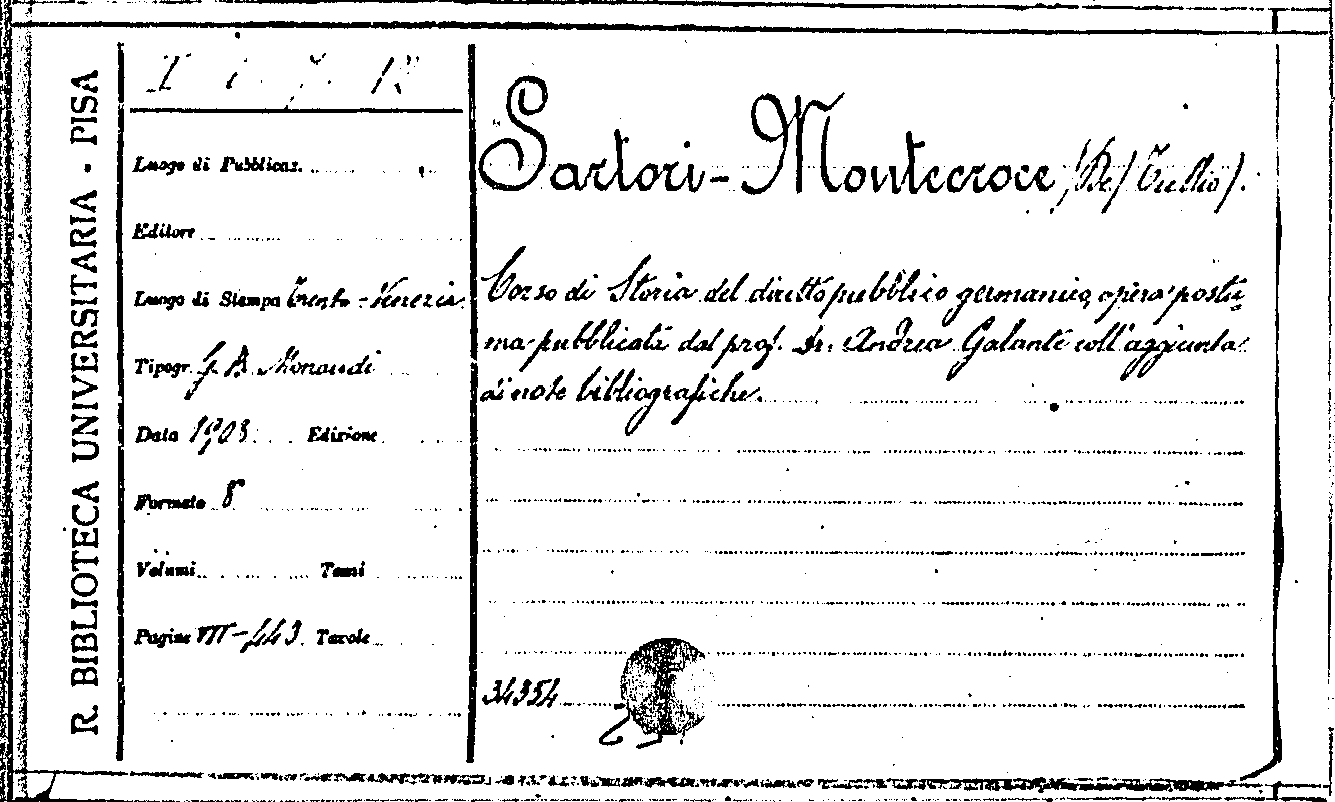 R. BIBLIOTECA UNIVERSITARIA - PISA
I i. 7. 12
Luogo di Pubblicaz.
Editore
Luogo di Stampa Trento - Venezia
Tipogr. G. B. Monauni
Data 1908. Edizione
Formato 8°
Volumi Tomi
Pagine VIII-443. Tavole
Sartori-Montecroce (De) Tullio).
Corso di Storia del diritto pubblico germanico, opera postu=
ma pubblicata dal prof. Dr. Andrea Galante coll'aggiunta
di note bibliografiche.
34354